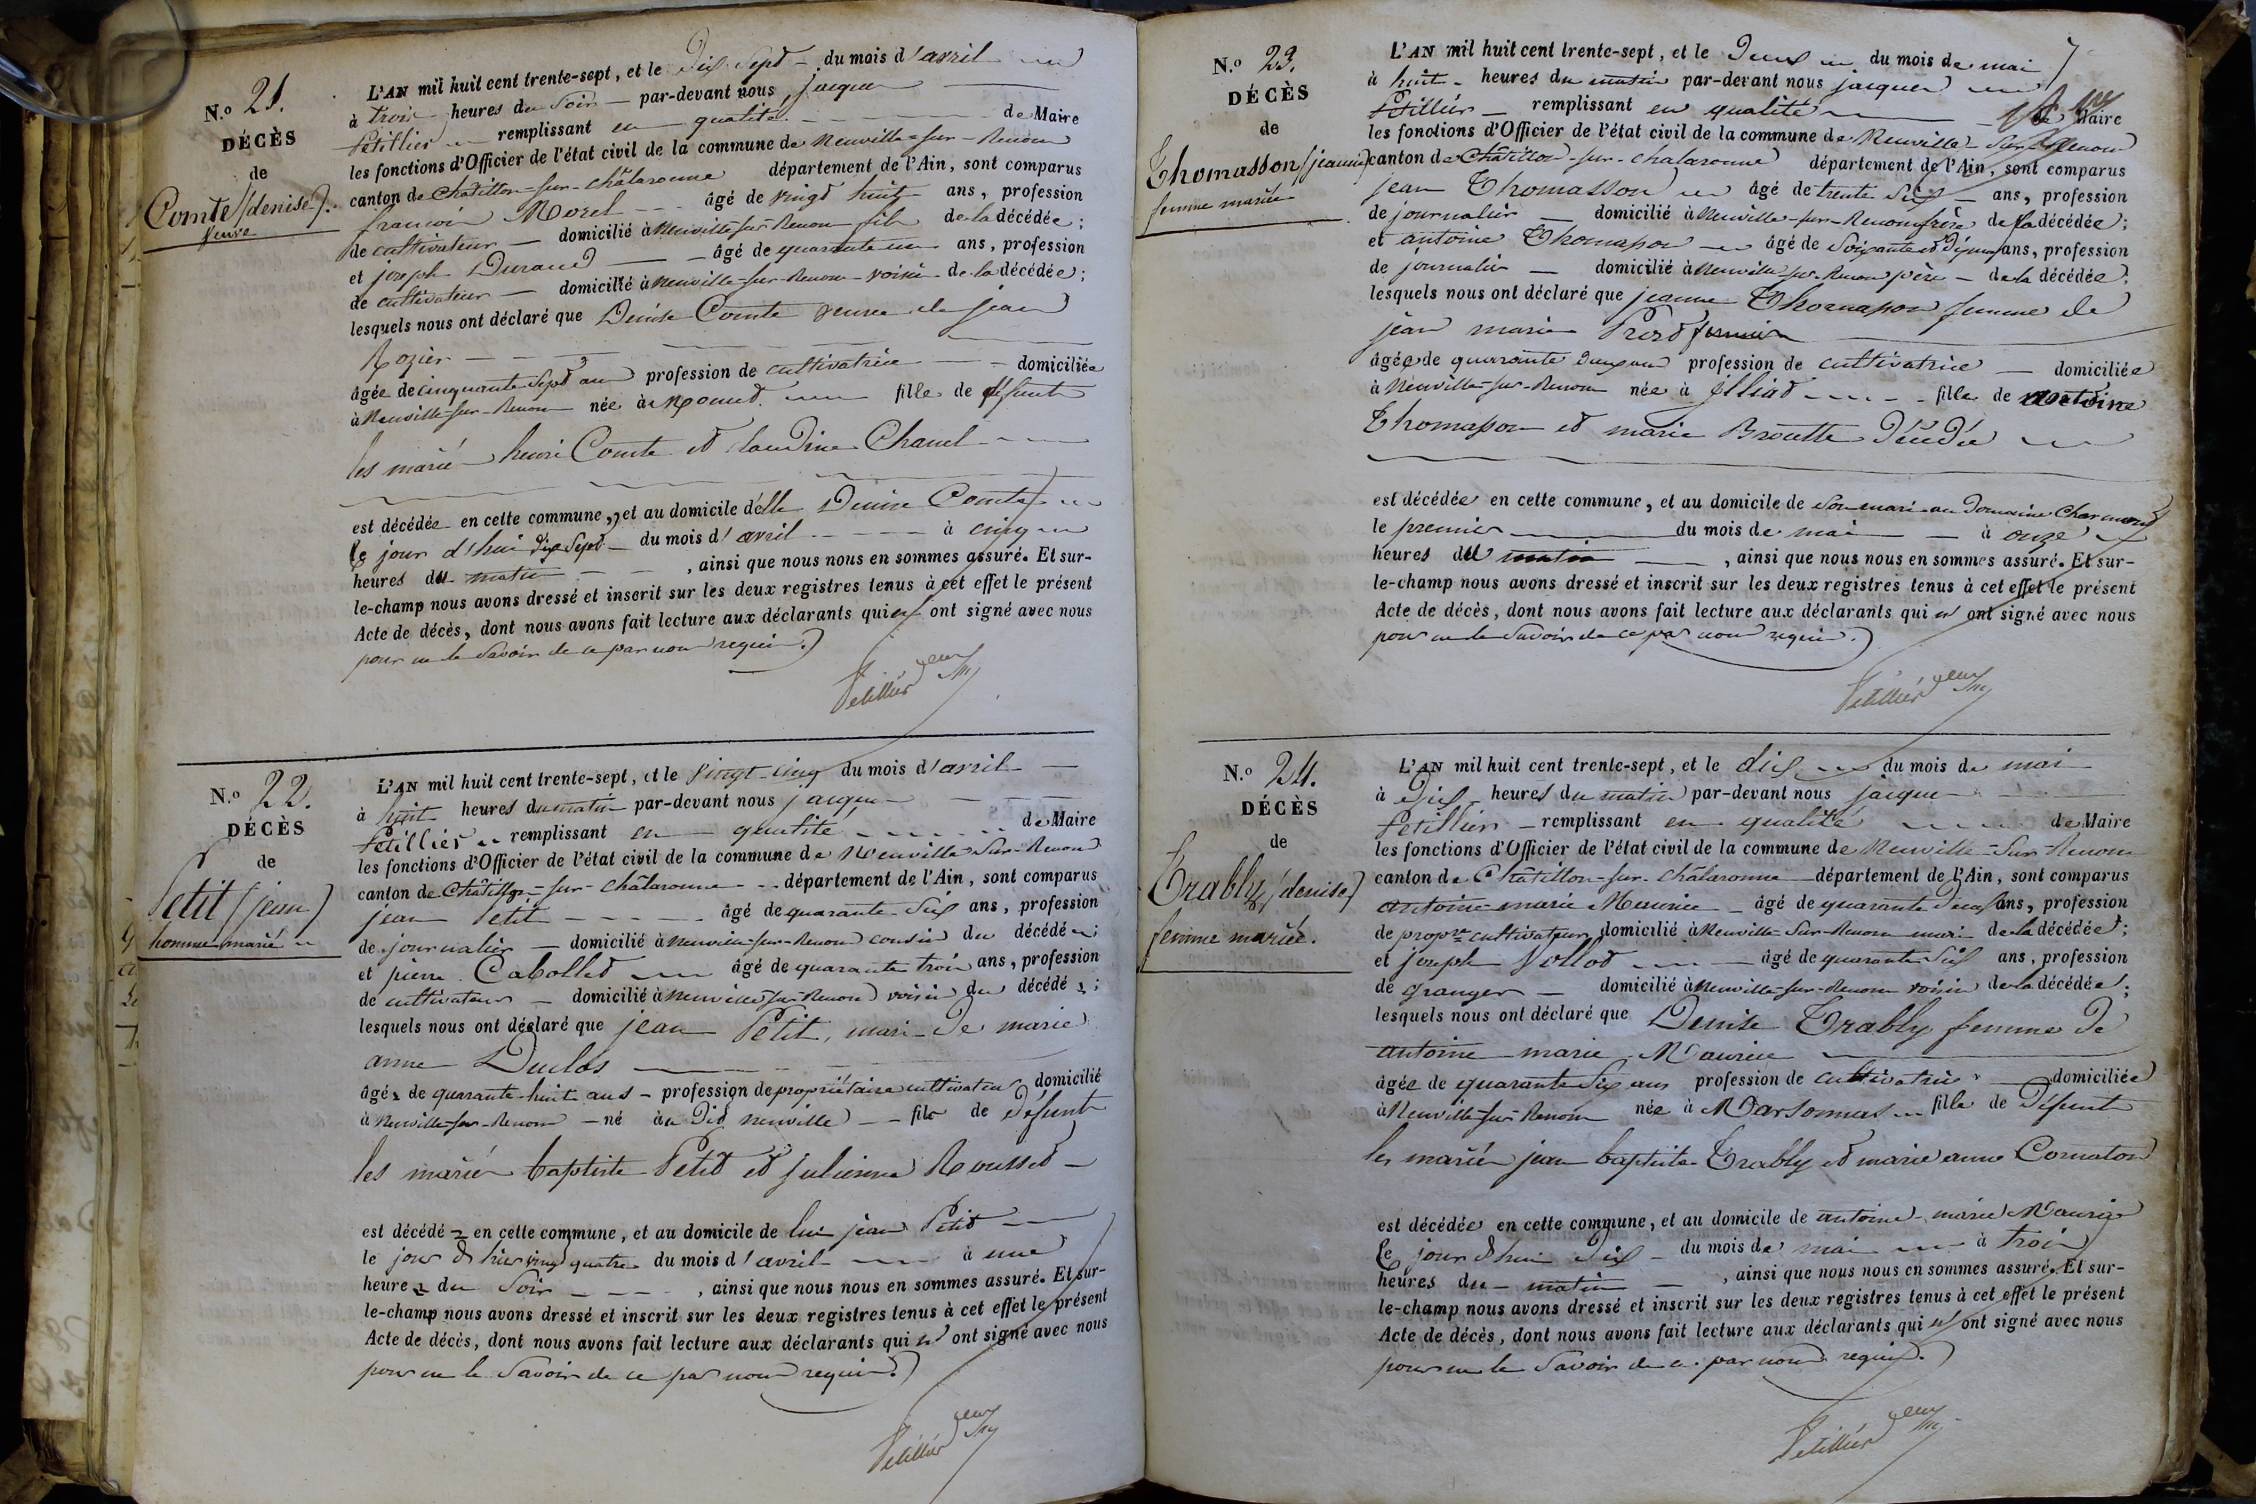 N.º 21.
DÉCÈS
de
Comte (denise).
veuve
L'AN mil huit cent trente-sept, et le dix sept du mois d'avril
à trois heures du soir par-devant nous jacques
Petillier remplissant en qualité de Maire
les fonctions d'Officier de l'état civil de la commune de Neuville-sur-Renom
canton de Châtillon-sur-châlaronne département de l'Ain, sont comparus
françois Morel âgé de vingt huit ans, profession
de cultivateur domicilié à neuville-sur-Renom fils de la décédée;
et joseph Durand âgé de quarante un ans, profession
de cultivateur domicilié à neuville-sur-Renom voisin de la décédée;
lesquels nous ont déclaré que Denise Comte veuve de jean
Rozier
âgée de cinquante sept ans profession de cultivatrice domiciliée
à Neuville-sur-Renom née à fille de défunts
les mariés henri Comte et claudine Chanel
est décédée en cette commune, et au domicile d'elle Denise Comte
le jour d'hui dix sept du mois d'avril à cinq
heures du matin , ainsi que nous nous en sommes assuré. Et sur-
le-champ nous avons dressé et inscrit sur les deux registres tenus à cet effet le présent
Acte de décès, dont nous avons fait lecture aux déclarants qui n' ont signé avec nous
pour ne le savoir de ce par nous requis.
Petillier
N.º 22.
DÉCÈS
de
Petit (jean)
homme marié
L'AN mil huit cent trente-sept, et le vingt-cinq du mois d'avril
à huit heures du matin par-devant nous jacques
Petillier remplissant en qualité de Maire
les fonctions d'Officier de l'état civil de la commune de Neuville-sur-Renom
canton de Châtillon-sur-châlaronne département de l'Ain, sont comparus
jean Petit âgé de quarante six ans, profession
de journalier domicilié à neuville-sur-Renom cousin du décédé;
et pierre Cabollet âgé de quarante trois ans, profession
de cultivateur domicilié à neuville-sur-Renom voisin du décédé;
lesquels nous ont déclaré que jean Petit, mari de marie
anne Duclos
âgé de quarante-huit ans profession de propriétaire cultivateur domicilié
à Neuville-sur-Renom né au dit neuville fils de défunts
les mariés baptiste Petit et julienne Rousset
est décédé en cette commune, et au domicile de lui jean Petit
le jour d'hier vingt quatre du mois d'avril à une
heure du soir , ainsi que nous nous en sommes assuré. Et sur-
le-champ nous avons dressé et inscrit sur les deux registres tenus à cet effet le présent
Acte de décès, dont nous avons fait lecture aux déclarants qui n' ont signé avec nous
pour ne le savoir de ce par nous requis.
Petillier
N.º 23.
DÉCÈS
de
Thomasson (jeanne)
femme mariée
L'AN mil huit cent trente-sept, et le deux du mois de mai
à huit heures du matin par-devant nous jacques
Petillier remplissant en qualité de Maire
les fonctions d'Officier de l'état civil de la commune de Neuville-sur-Renom
canton de Châtillon-sur-chalaronne département de l'Ain, sont comparus
jean Thomasson âgé de trente six ans, profession
de journalier domicilié à Neuville-sur-Renom frère de la décédée;
et antoine Thomasson âgé de ans, profession
de journalier domicilié à Neuville-sur-Renom père de la décédée;
lesquels nous ont déclaré que jeanne Thomasson femme de
jean marie
âgée de quarante deux ans profession de cultivatrice domiciliée
à Neuville-sur-Renom née à illiat fille de antoine
Thomasson et marie Broutte décédée
est décédée en cette commune, et au domicile de son mari au domaine
le premier du mois de mai à onze
heures du matin , ainsi que nous nous en sommes assuré. Et sur-
le-champ nous avons dressé et inscrit sur les deux registres tenus à cet effet le présent
Acte de décès, dont nous avons fait lecture aux déclarants qui n' ont signé avec nous
pour ne le savoir de ce par nous requis.
Petillier
N.º 24.
DÉCÈS
de
Trably (denise)
femme mariée.
L'AN mil huit cent trente-sept, et le dix du mois de mai
à dix heures du matin par-devant nous jacques
Petillier remplissant en qualité de Maire
les fonctions d'Officier de l'état civil de la commune de Neuville-sur-Renom
canton de Châtillon-sur-châlaronne département de l'Ain, sont comparus
antoine marie Maurice âgé de quarante deux ans, profession
de propre cultivateur domicilié à Neuville-sur-Renom mari de la décédée;
et joseph Vollot âgé de quarante six ans, profession
de granger domicilié à Neuville-sur-Renom voisin de la décédée;
lesquels nous ont déclaré que Denise Trably femme de
antoine marie Maurice
âgée de quarante six ans profession de cultivatrice domiciliée
à Neuville-sur-Renom née à Marsonnas fille de défunts
les mariés jean baptiste Trably et marie anne Cornaton
est décédée en cette commune, et au domicile de antoine marie Maurice
le jour d'hui dix du mois de mai à trois
heures du matin , ainsi que nous nous en sommes assuré. Et sur-
le-champ nous avons dressé et inscrit sur les deux registres tenus à cet effet le présent
Acte de décès, dont nous avons fait lecture aux déclarants qui n' ont signé avec nous
pour ne le savoir de ce par nous requis.
Petillier